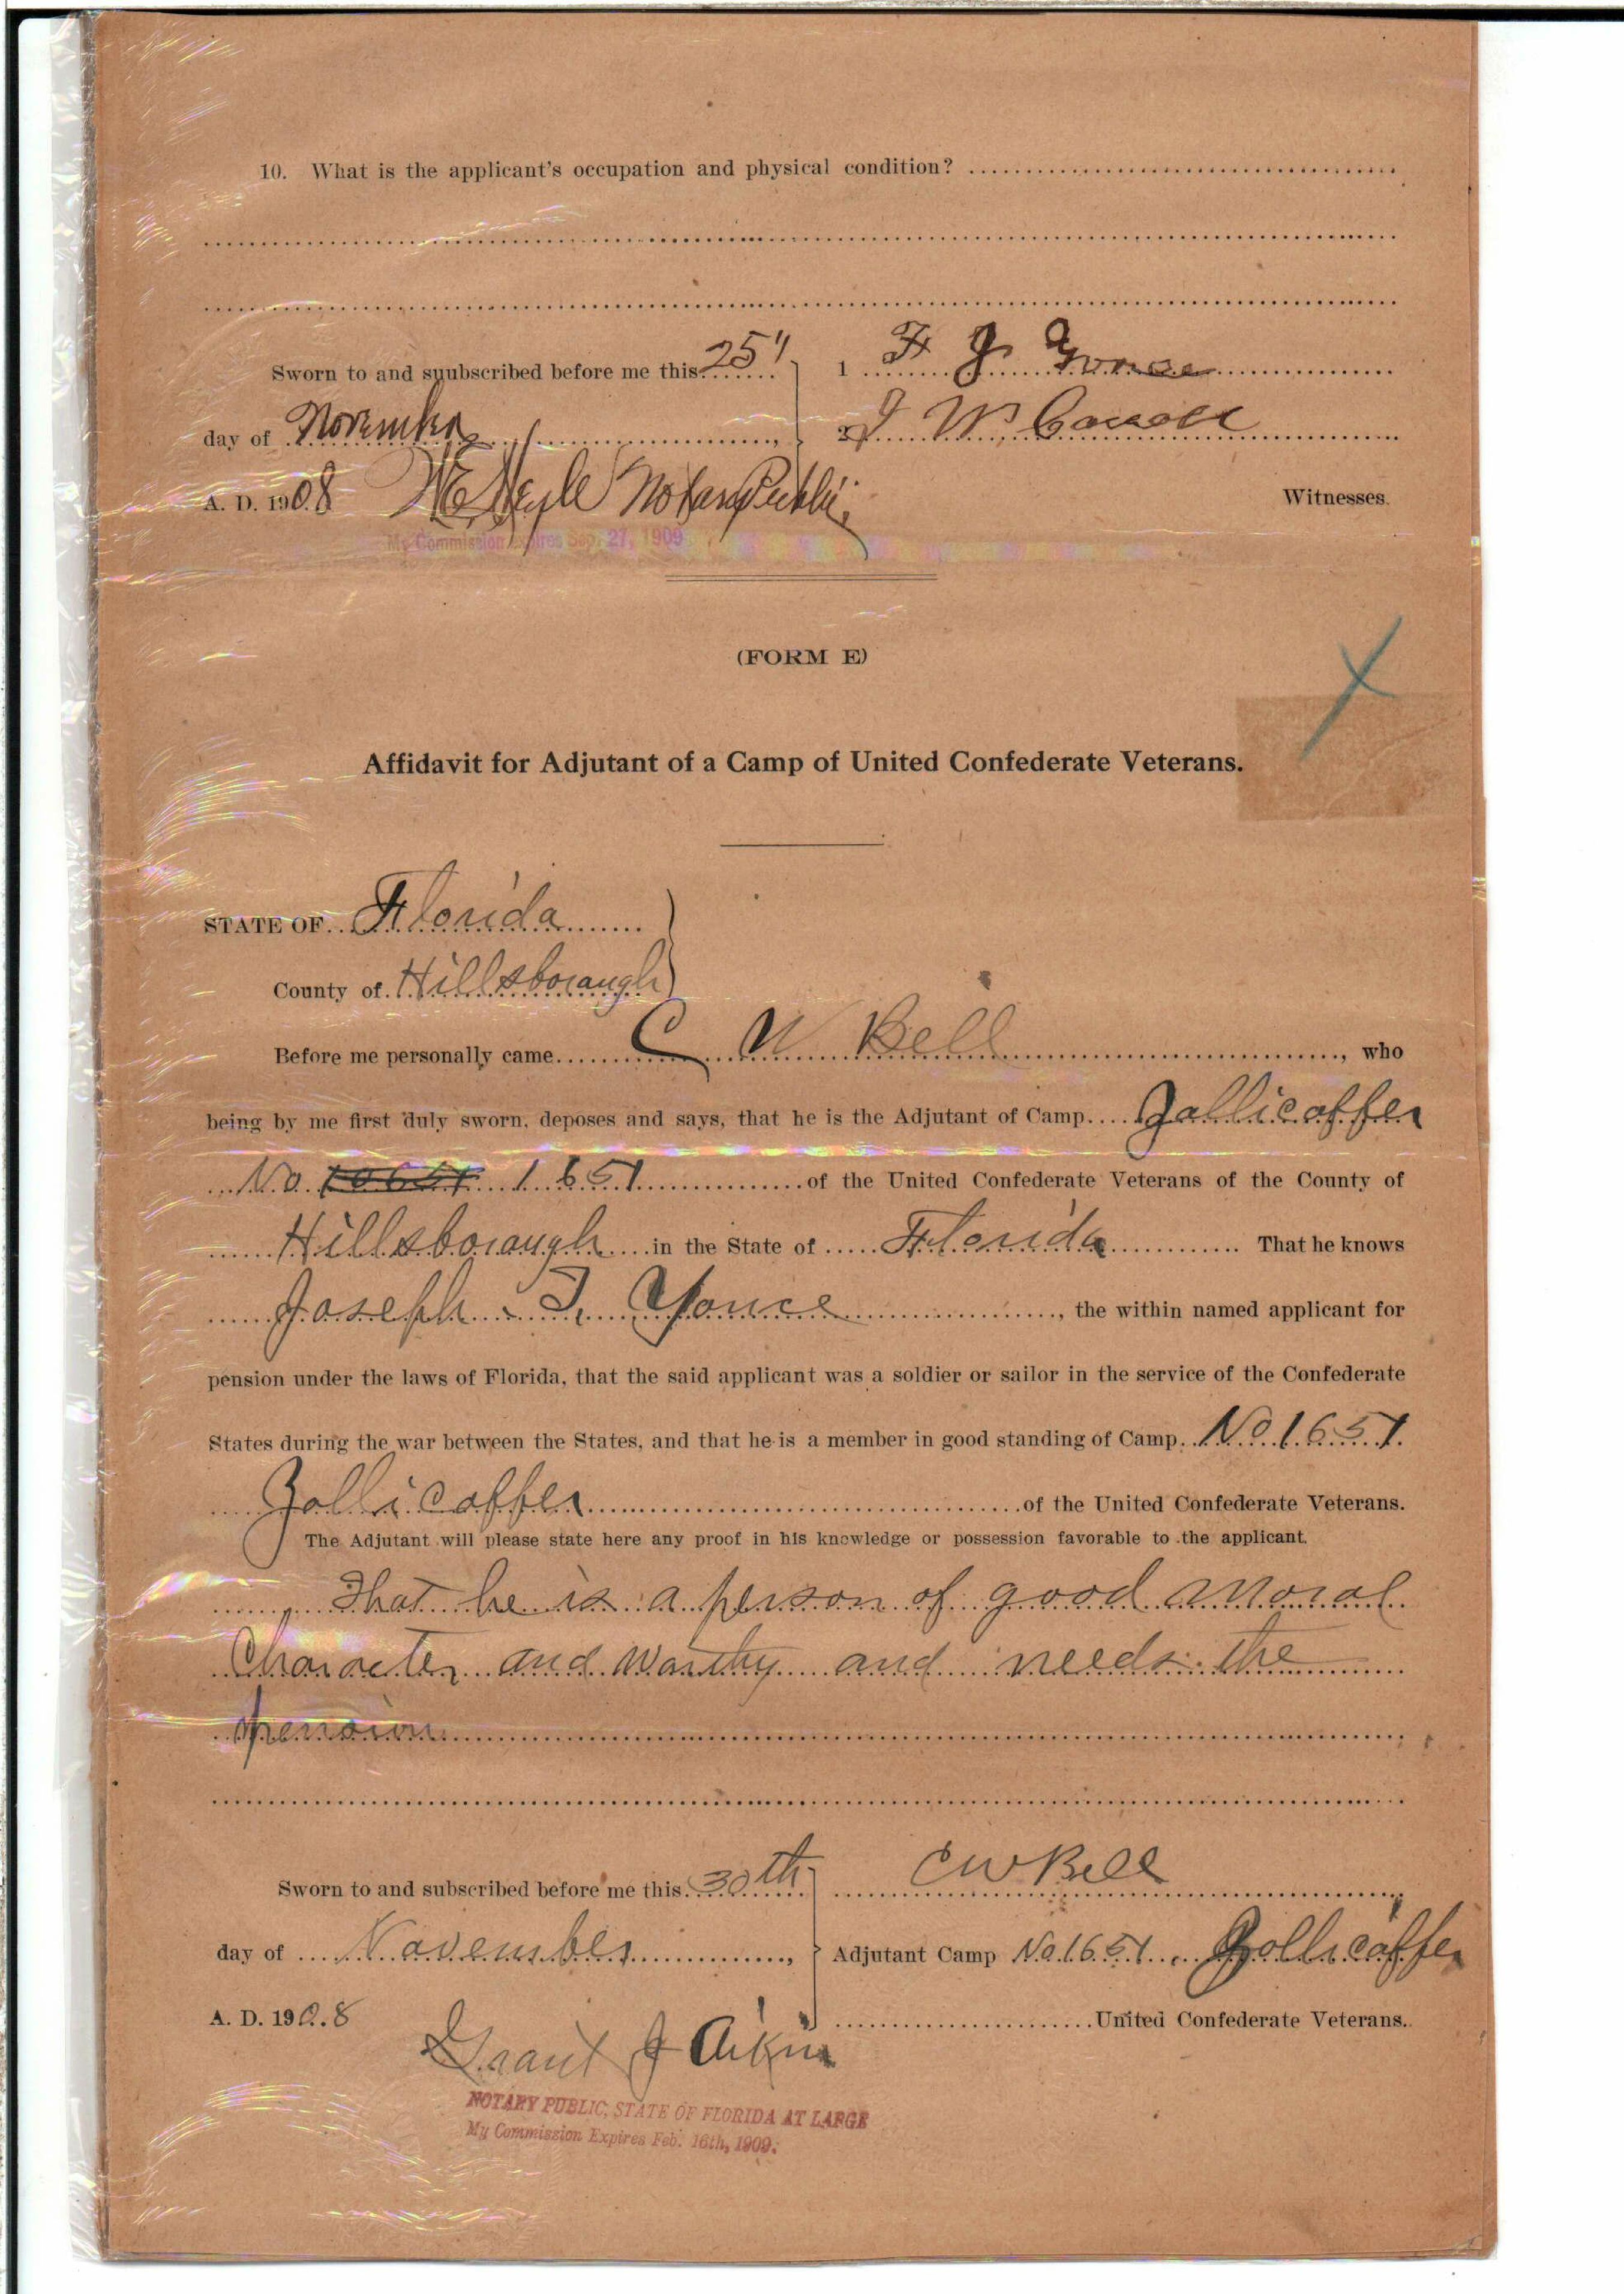 10. What is the applicant's occupation and physical condition? ........................................
........................................
........................................
Sworn to and suubscribed before me this 25" 1 F J Yonce
day of November, 2 J W
A. D. 1908 W E Notary Public Witnesses.
My Commission Expires Sep. 27, 1909
(FORM E)
X
Affidavit for Adjutant of a Camp of United Confederate Veterans.
STATE OF Florida
County of Hillsborough
Before me personally came C W Bell, who
being by me first duly sworn, deposes and says, that he is the Adjutant of Camp Zollicoffer
No 1651 of the United Confederate Veterans of the County of
Hillsborough in the State of Florida That he knows
Joseph T. Yonce, the within named applicant for
pension under the laws of Florida, that the said applicant was a soldier or sailor in the service of the Confederate
States during the war between the States, and that he is a member in good standing of Camp No 1651
Zollicoffer of the United Confederate Veterans.
The Adjutant will please state here any proof in his knowledge or possession favorable to the applicant.
That he is a person of good Moral
Character and Worthy and needs the
pension
Sworn to and subscribed before me this 30th C W Bell
day of November, Adjutant Camp No 1651 Zollicoffer
A. D. 1908 United Confederate Veterans.
Grant J Aikin
NOTARY PUBLIC, STATE OF FLORIDA AT LARGE
My Commission Expires Feb. 16th, 1909.